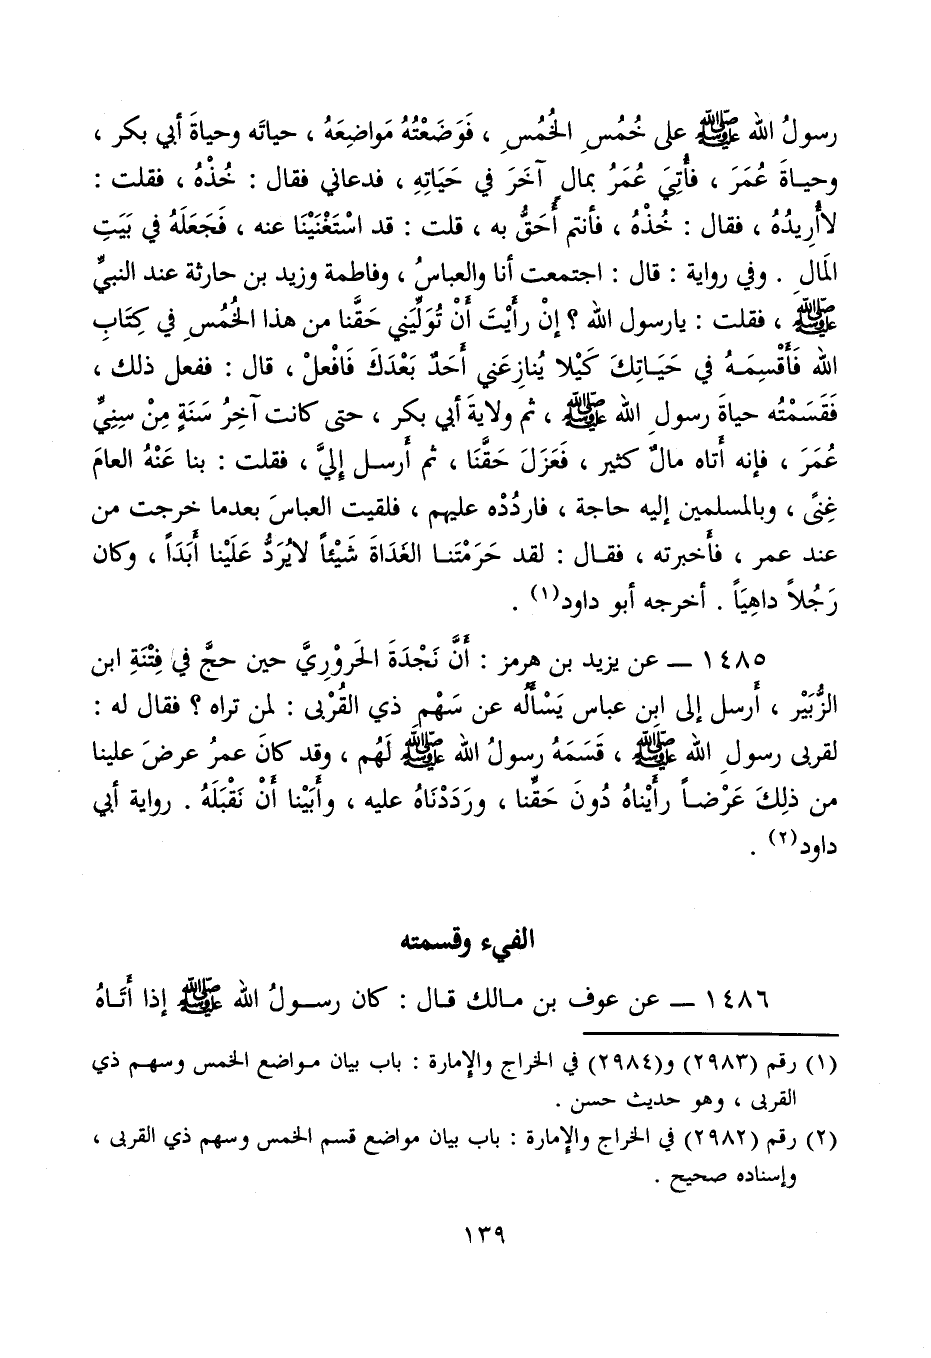 رسولُ الله ﷺ على خُمُسِ الخُمُسِ ، فَوَضَعْتُهُ مَواضِعَهُ ، حياتَه وحياةَ أبي بكر ،
وحياةَ عُمَرَ ، فأُتِيَ عُمَرُ بمالٍ آخَرَ في حَيَاتِهِ ، فدعاني فقال : خُذْهُ ، فقلت :
لاأُرِيدُهُ ، فقال : خُذْهُ ، فأنتم أحَقُّ به ، قلت : قد اسْتَغْنَيْنَا عنه ، فَجَعَلَهُ في بَيَتِ
المَالِ . وفي رواية : قال : اجتمعت أنا والعباسُ ، وفاطمة وزيد بن حارثة عند النبيِّ
ﷺ ، فقلت : يارسول الله ؟ إنْ رأَيْتَ أَنْ تُوَلِّيَني حَقَّنا من هذا الخُمُسِ في كِتَابِ
الله فَأَقْسِمَهُ في حَيَاتِكَ كَيْلا يُنازِعَني أَحَدٌ بَعْدَكَ فَافْعلْ ، قال : ففعل ذلك ،
فَقَسَمْتُه حياةَ رسولِ الله ﷺ ، ثم ولايةَ أبي بكر ، حتى كانت آخِرُ سَنَةٍ مِنْ سِنِيِّ
عُمَرَ ، فإنه أتاه مالٌ كثير ، فَعَزَلَ حَقَّنَا ، ثم أَرسل إليَّ ، فقلت : بنا عَنْهُ العامَ
غِنىً ، وبالمسلمين إليه حاجة ، فاردُدْه عليهم ، فلقيت العباسَ بعدما خرجت من
عند عمر ، فأَخبرته ، فقال : لقد حَرَمْتَنا الغَدَاةَ شَيْئاً لايُرَدُّ عَلَيْنا أبَدَاً ، وكان
رَجُلاً داهِيَاً . أخرجه أبو داود(١) .
١٤٨٥ ــ عن يزيد بن هرمز : أَنَّ نَجْدَةَ الحَروْرِيَّ حين حجَّ في فِتْنَةِ ابن
الزُّبَيْر ، أَرسل إلى ابن عباس يَسْأَلُه عن سَهْمِ ذي القُرْبى : لمن تراه ؟ فقال له :
لقربى رسولِ الله ﷺ ، قَسَمَهُ رسولُ الله ﷺ لَهُم ، وقد كانَ عمرُ عرضَ علينا
من ذلِكَ عَرْضاً رأيْناهُ دُونَ حَقِّنا ، ورَدَدْنَاهُ عليه ، وأبَيْنا أَنْ نَقْبَلَهُ . رواية أبي
داود(٢) .
الفيء وقسمته
١٤٨٦ ــ عن عوف بن مالك قال : كان رسولُ الله ﷺ إذا أَتَاهُ
(١) رقم (٢٩٨٣) و(٢٩٨٤) في الخراج والإمارة : باب بيان مواضع الخمس وسهم ذي
القربى ، وهو حديث حسن .
(٢) رقم (٢٩٨٢) في الخراج والإمارة : باب بيان مواضع قسم الخمس وسهم ذي القربى ،
وإسناده صحيح .
١٣٩